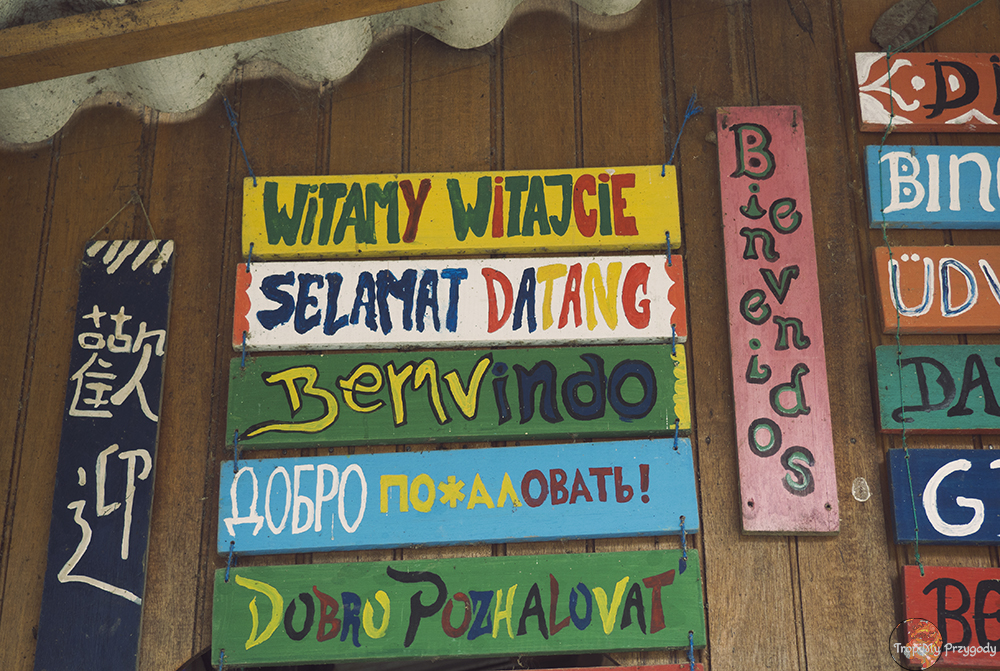 歡迎
WiTAMY WiTAJCIE
SELAMAT DATANG
Bemvindo
ДОБРО ПОЖАЛОВАТЬ!
DOBRO POZHALOVAT
Bienvenidos
Di
BiN
ÜDV
DA
G
BE
Tropimy Przygody